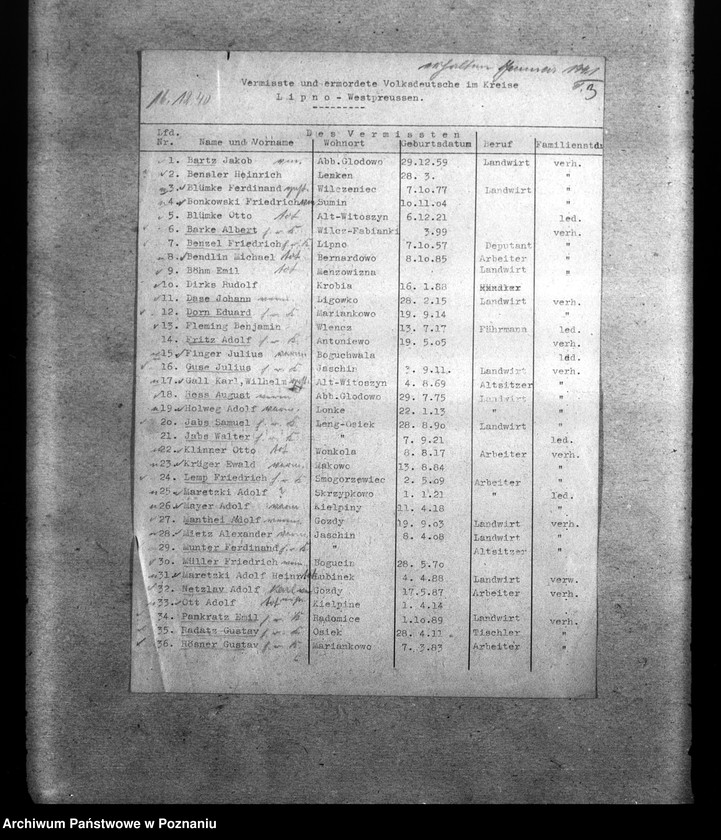 16.12.40
Vermisste und ermordete Volksdeutsche im Kreise
Lipno - Westpreussen.
Lfd. Des Vermissten
Nr. Name und Vorname Wohnort Geburtsdatum Beruf Familienstd.
1. Bartz Jakob verm. Abb.Glodowo 29.12.59 Landwirt verh.
2. Bensler Heinrich Lemken 28. 3. "
3. Blümke Ferdinand Wilczeniec 7.10.77 Landwirt "
4. Bonkowski Friedrich Sumin 10.11.04 "
5. Blümke Otto tot Alt-Witoszyn 6.12.21 led.
6. Barke Albert Wilcz-Fabianki 3.99 verh.
7. Benzel Friedrich Lipno 7.10.57 Deputant "
8. Bendlin Michael tot Bernardowo 8.10.85 Arbeiter "
9. Böhm Emil tot Menzowizna Landwirt "
10. Dirks Rudolf Krobia 16. 1.88
11. Dase Johann verm. Ligowko 28. 2.15 Landwirt verh.
12. Dorn Eduard Mariankowo 19. 9.14 "
13. Fleming Benjamin Wlencz 13. 7.17 Führmann led.
14. Fritz Adolf Antoniewo 19. 5.05 verh.
15. Finger Julius verm. Boguchwala led.
16. Guse Julius Jaschin 9.11. Landwirt verh.
17. Gall Karl, Wilhelm Alt-Witoszyn 4. 8.69 Altsitzer "
18. Hess August verm. Abb.Glodowo 29. 7.75 Landwirt "
19. Holweg Adolf verm. Lonke 22. 1.13 " "
20. Jabs Samuel Leng-Osiek 28. 8.90 Landwirt "
21. Jabs Walter " 7. 9.21 led.
22. Klinner Otto tot Wonkola 8. 8.17 Arbeiter verh.
23. Krüger Ewald verm. Makowo 13. 8.84 "
24. Lemp Friedrich Smogorzewiec 2. 5.09 Arbeiter "
25. Maretzki Adolf ? Skrzypkowo 1. 1.21 " led.
26. Mayer Adolf verm. Kielpiny 11. 4.18 "
27. Manthei Adolf verm. Gozdy 19. 9.03 Landwirt verh.
28. Mietz Alexander verm. Jaschin 8. 4.08 Landwirt "
29. Munter Ferdinand " Altsitzer "
30. Müller Friedrich verm. Hogucin 28. 5.70
31. Maretzki Adolf Heinr. Lubinek 4. 4.88 Landwirt verw.
32. Netzlav Adolf Gozdy 17.5.87 Arbeiter verh.
33. Ott Adolf tot Kielpine 1. 4.14
34. Pankratz Emil Radomice 1.10.89 Landwirt verh.
35. Radatz Gustav Osiek 28. 4.11 Tischler "
36. Rösner Gustav Mariankowo 7. 3.83 Arbeiter "
Archiwum Państwowe w Poznaniu